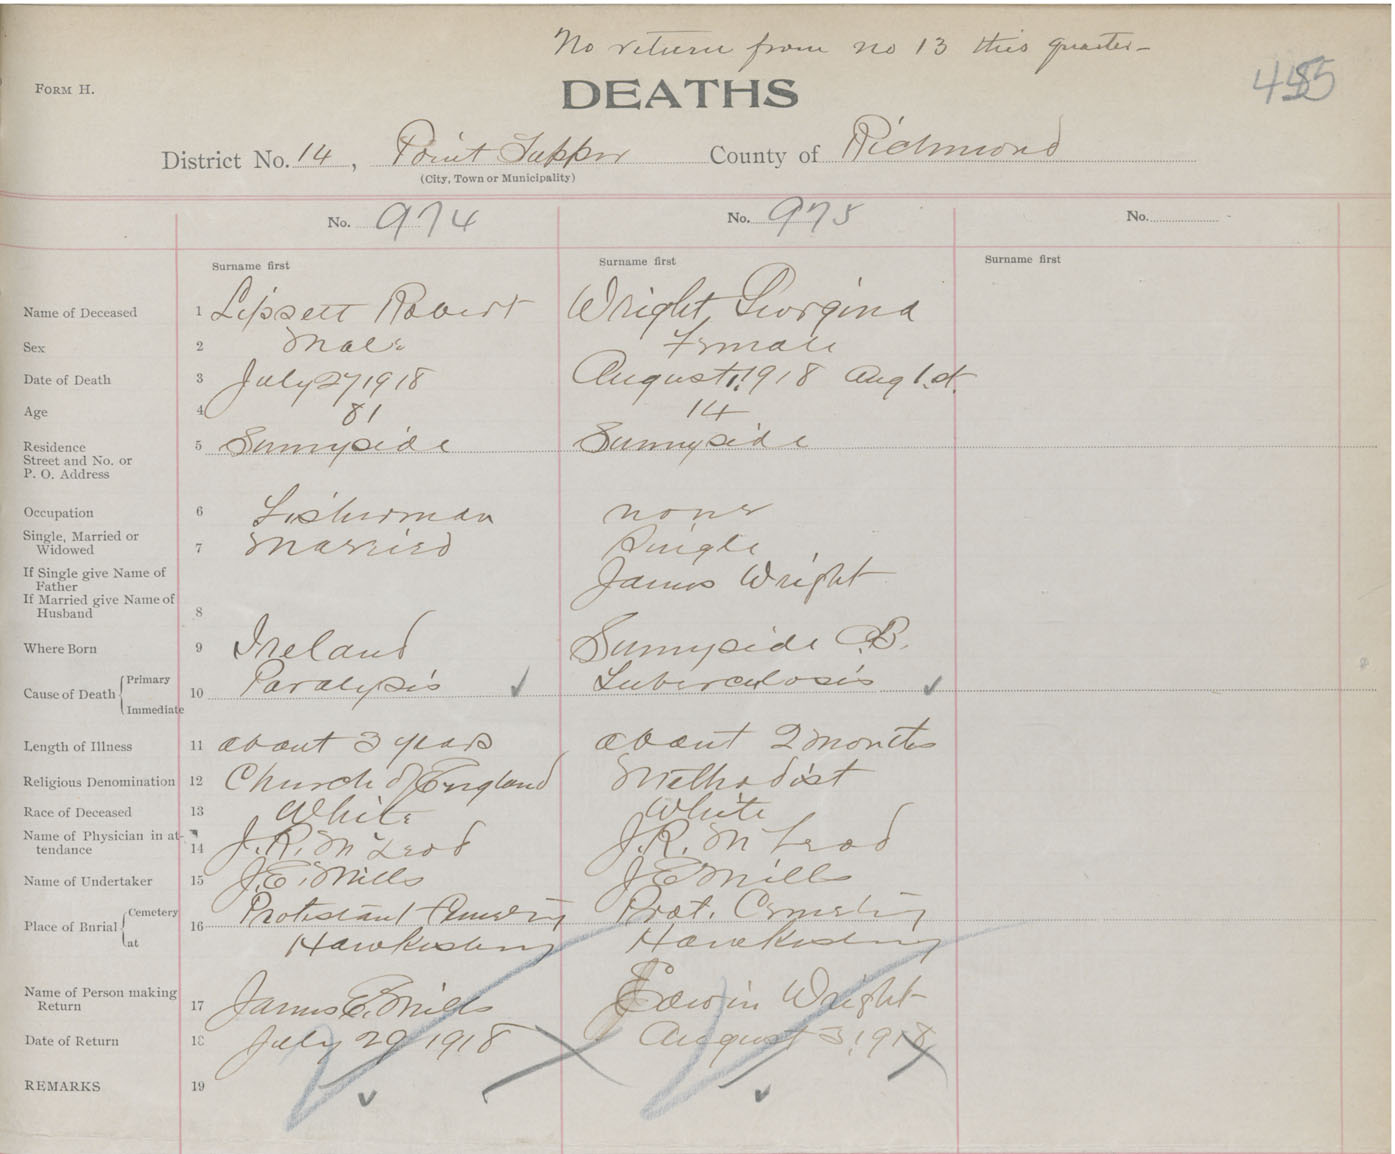 No return from no 13 this quarter
FORM H.
DEATHS
District No. 14, Point Tupper County of Richmond
(City, Town or Municipality)
No. 974 No. 975 No.
Surname first Surname first Surname first
Name of Deceased 1 Lipsett Robert Wright, Georgina
Sex 2 Male Female
Date of Death 3 July 27 1918 August 1, 1918 Aug 1.st.
Age 4 81 14
Residence 5 Sunnyside Sunnyside
Street and No. or
P. O. Address
Occupation 6 Fisherman none
Single, Married or
Widowed 7 Married Single
If Single give Name of
Father James Wright
If Married give Name of
Husband 8
Where Born 9 Ireland Sunnyside C.B.
Cause of Death Primary 10 Paralysis ✓ Tuberculosis ✓
Immediate
Length of Illness 11 about 3 years about 2 months
Religious Denomination 12 Church of England Methodist
Race of Deceased 13 White White
Name of Physician in at-
tendance 14 J. R. McLeod J. R. McLeod
Name of Undertaker 15 J. E. Mills J E Mills
Place of Burial Cemetery 16 Protestant Cemetery Prot. Cemetery
at Hawkesbury Hawkesbury
Name of Person making
Return 17 James E. Mills Edwin Wright
Date of Return 18 July 29 1918 August 3, 1918
REMARKS 19 ✓ ✓